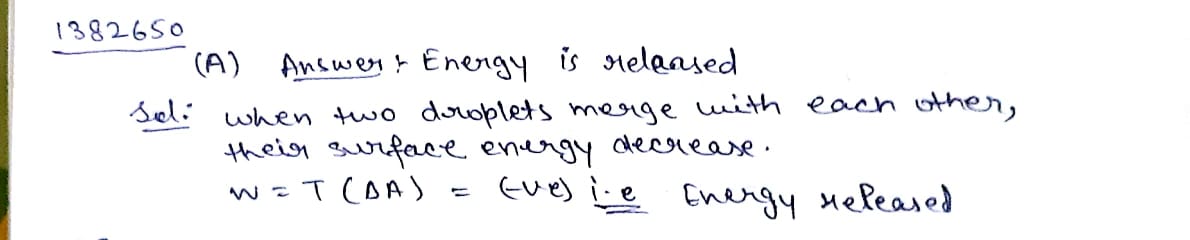 1382650
(A) Answer : Energy is released
Sol: when two droplets merge with each other,
their surface energy decrease.
W = T (ΔA) = (-ve) i.e Energy released